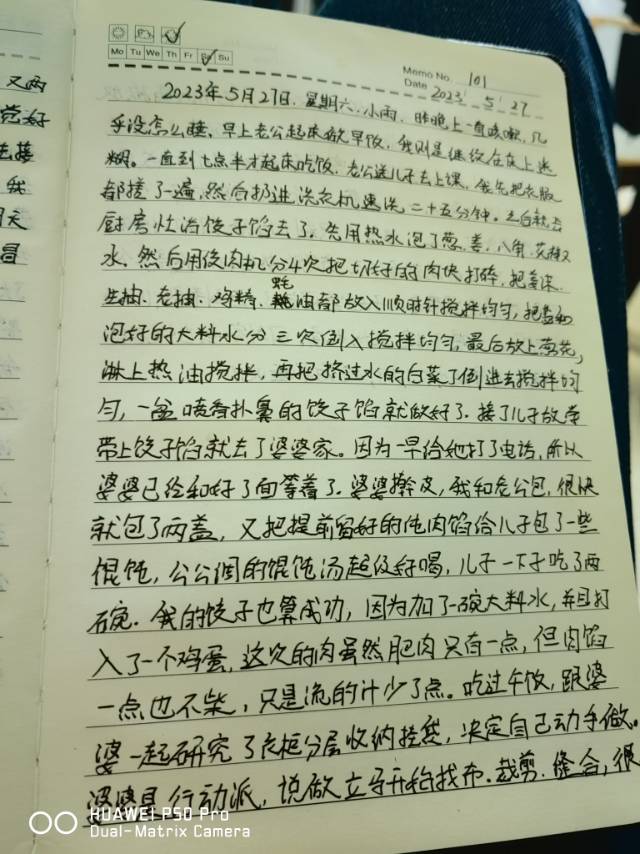 又两
觉好
我
天
冒
Mo Tu We Th Fr Sa Su
Memo No. 101
Date 2023 5 27
2023年5月27日. 星期六. 小雨. 昨晚上一直咳嗽, 几
乎没怎么睡. 早上老公起床做早饭, 我则是继续在床上迷
糊. 一直到七点半才起床吃饭. 老公送儿子去上课, 我先把衣服
都搓了一遍, 然后扔进洗衣机速洗二十五分钟.
厨房拌馅饺子馅去了. 先用热水泡了葱. 姜. 八角. 花椒
水. 然后用绞肉机分4次把切好的肉块打碎, 把
生抽. 老抽. 鸡精. 蚝油都放入顺时针搅拌均匀, 把
泡好的大料水分三次倒入搅拌均匀, 最后放上葱花,
淋上热油搅拌, 再把挤过水的白菜丁倒进去搅拌均
匀, 一盆喷香扑鼻的饺子馅就做好了. 接了儿子放学
带上饺子馅就去了婆婆家。因为一早给她打了电话, 所以
婆婆已经和好了面等着了. 婆婆擀皮, 我和老公包, 很快
就包了两盖, 又把提前留好的纯肉馅给儿子包了一些
馄饨, 公公调的馄饨汤超级好喝, 儿子一下子吃了两
碗. 我的饺子也算成功, 因为加了一碗大料水, 并且打
入了一个鸡蛋, 这次的肉虽然肥肉只有一点, 但肉馅
一点也不柴, 只是流的汁少了点。吃过午饭, 跟婆
婆一起研究了衣柜分层收纳挂袋, 决定自己动手做。
婆婆是行动派, 说做立马开始找布. 裁剪. 缝合, 很
HUAWEI P50 Pro
Dual-Matrix Camera